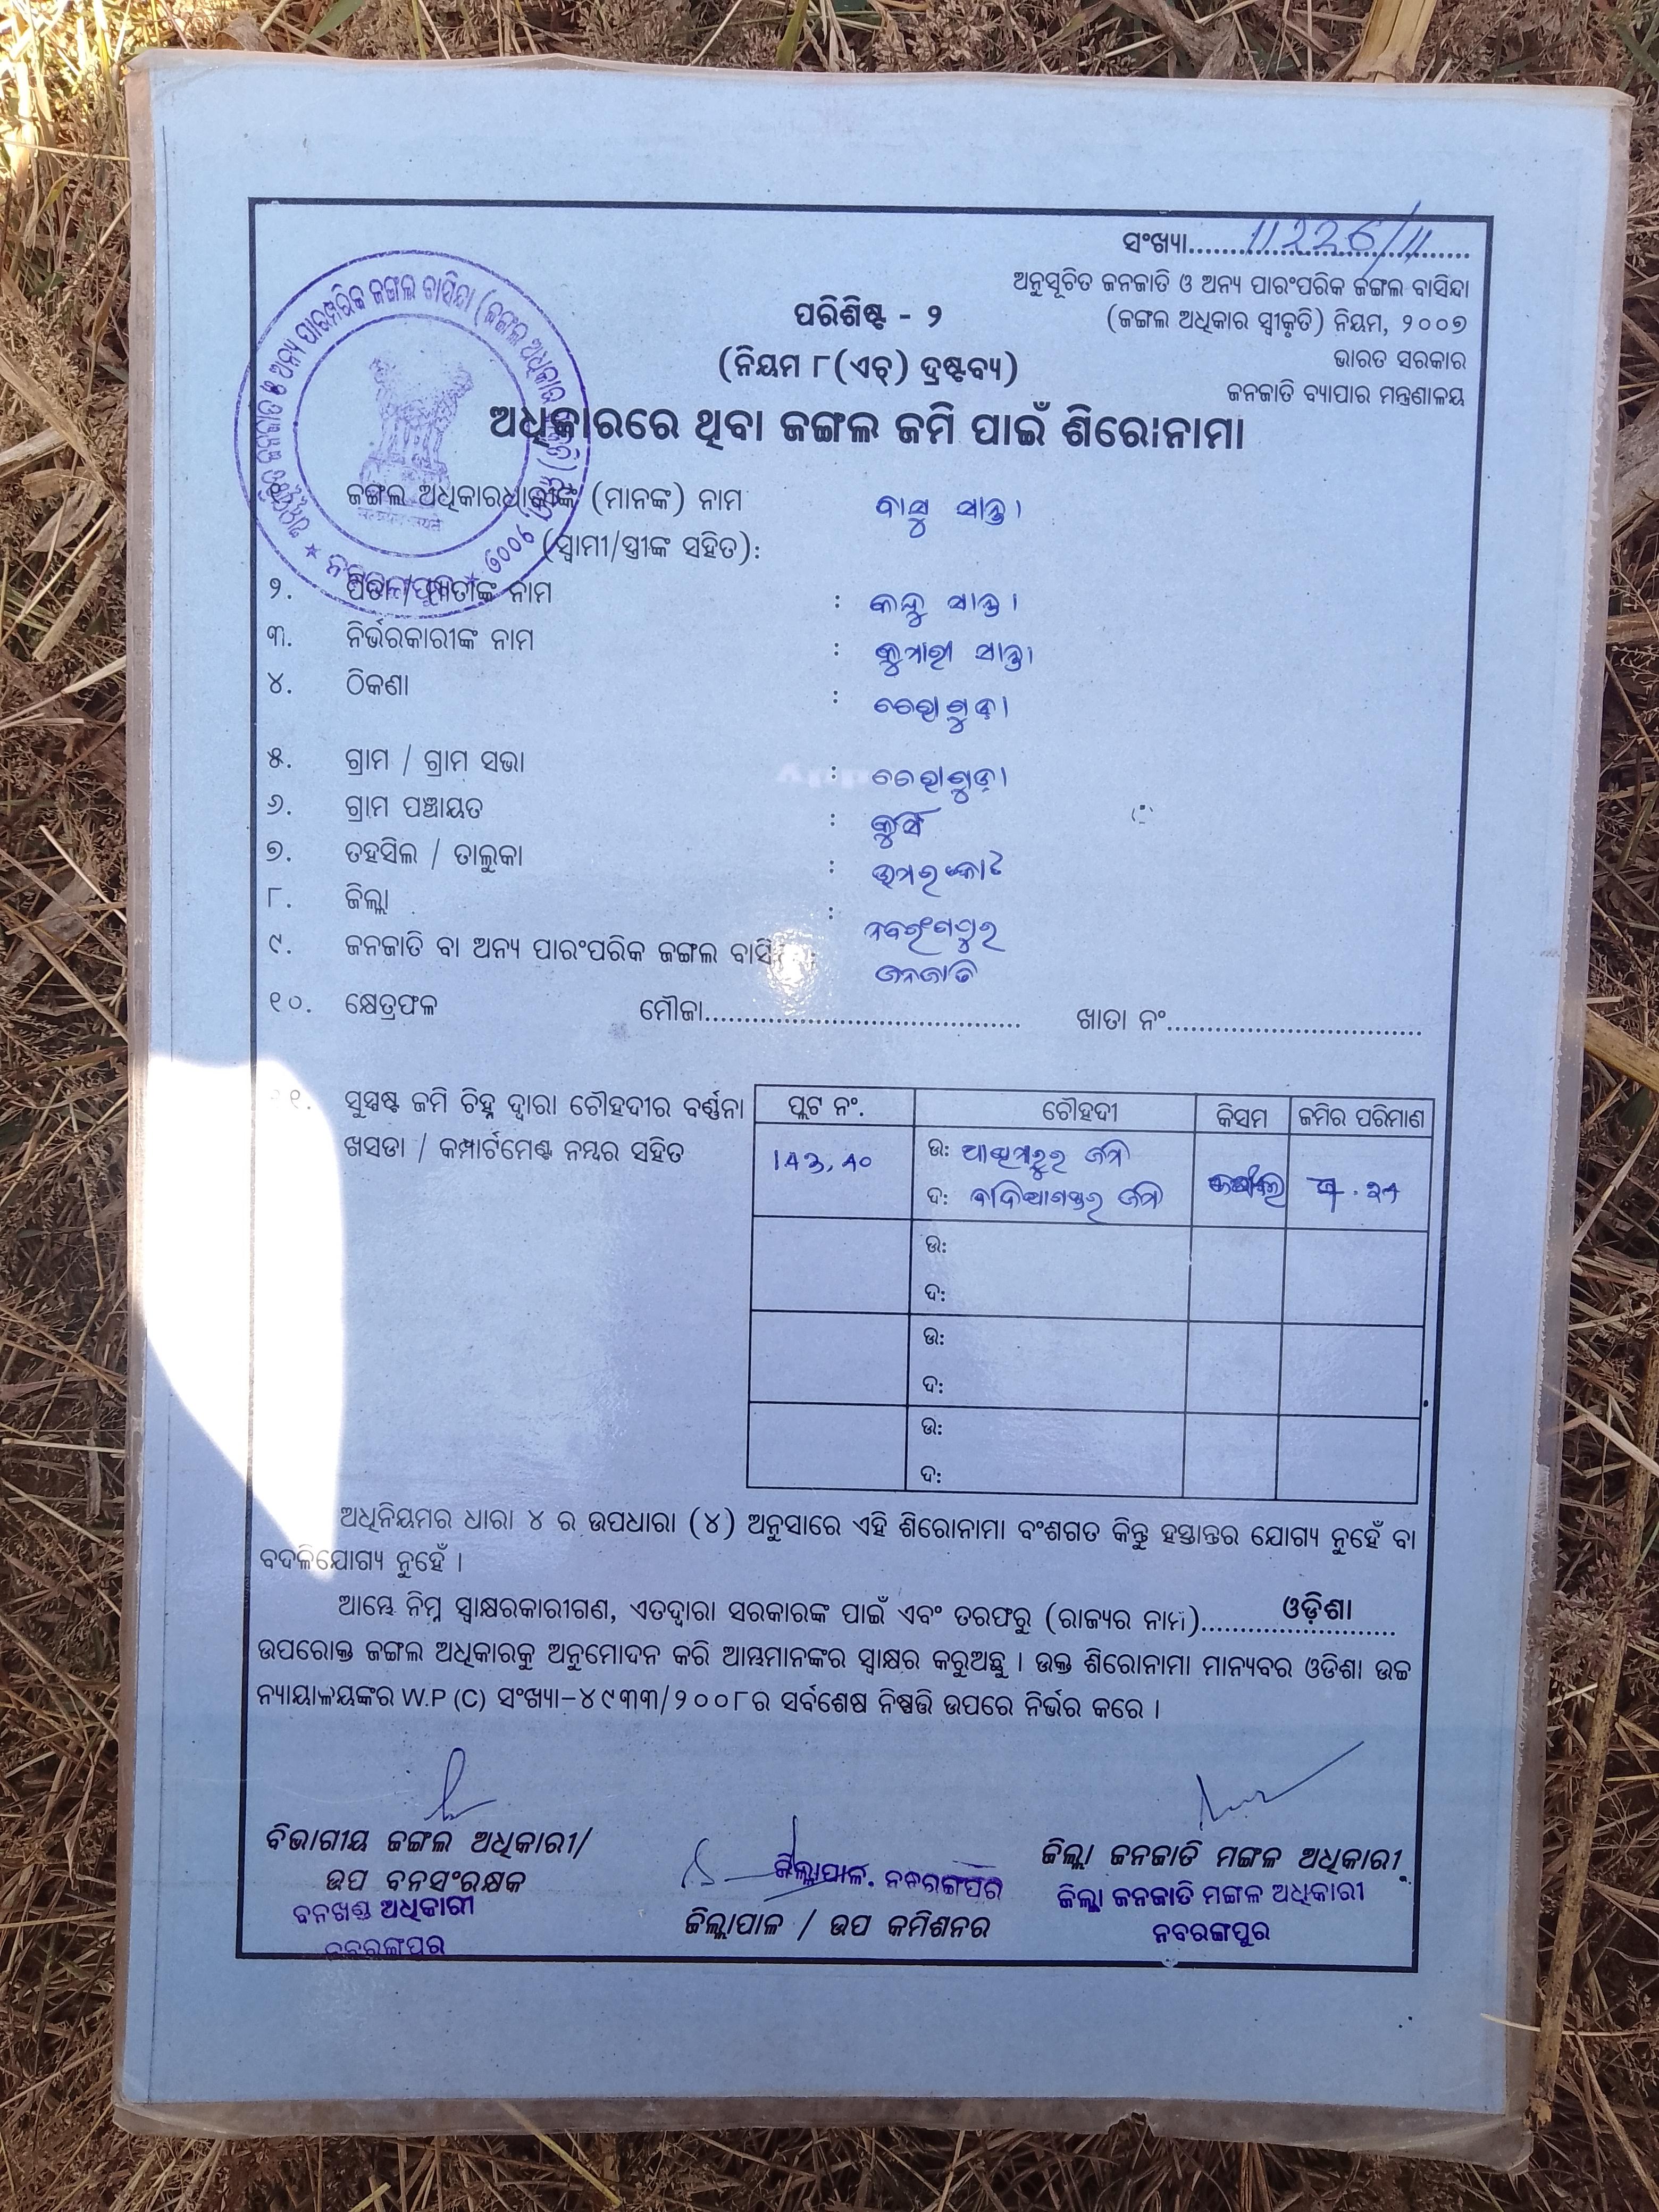 ସଂଖ୍ୟା..... 11226/11
ଅନୁସୂଚିତ ଜନଜାତି ଓ ଅନ୍ୟ ପାରଂପରିକ ଜଙ୍ଗଲ ବାସିନ୍ଦା
(ଜଙ୍ଗଲ ଅଧିକାର ସ୍ୱୀକୃତି) ନିୟମ, ୨୦୦୭
ଭାରତ ସରକାର
ଜନଜାତି ବ୍ୟାପାର ମନ୍ତ୍ରଣାଳୟ
ପରିଶିଷ୍ଟ - ୨
(ନିୟମ ୮(ଏଚ୍) ଦ୍ରଷ୍ଟବ୍ୟ)
ଅଧିକାରରେ ଥିବା ଜଙ୍ଗଲ ଜମି ପାଇଁ ଶିରୋନାମା
ଜଙ୍ଗଲ ଅଧିକାରଧାରୀଙ୍କ (ମାନଙ୍କ) ନାମ ବାସୁ ସାନ୍ତା
(ସ୍ୱାମୀ/ସ୍ତ୍ରୀଙ୍କ ସହିତ):
୨. ପିତା / ମାତାଙ୍କ ନାମ : ସାନ୍ତା
୩. ନିର୍ଭରକାରୀଙ୍କ ନାମ : କୁମାରୀ ସାନ୍ତା
୪. ଠିକଣା :
୫. ଗ୍ରାମ / ଗ୍ରାମ ସଭା :
୬. ଗ୍ରାମ ପଞ୍ଚାୟତ : କୁର୍ସି
୭. ତହସିଲ / ତାଲୁକା : ଉମରକୋଟ
୮. ଜିଲ୍ଲା : ନବରଂଗପୁର
୯. ଜନଜାତି ବା ଅନ୍ୟ ପାରଂପରିକ ଜଙ୍ଗଲ : ଜନଜାତି
୧୦. କ୍ଷେତ୍ରଫଳ ମୌଜା..... ଖାତା ନଂ.....
ସୁସ୍ପଷ୍ଟ ଜମି ଚିହ୍ନ ଦ୍ୱାରା ଚୌହଦୀର ବର୍ଣ୍ଣନା
ଖସଡା / କମ୍ପାର୍ଟମେଣ୍ଟ ନମ୍ବର ସହିତ
ପ୍ଲଟ ନଂ. ଚୌହଦୀ କିସମ ଜମିର ପରିମାଣ
ଉ: ଜମି
ଦ: ଜମି
ଉ:
ଦ:
ଉ:
ଦ:
ଉ:
ଦ:
ଅଧିନିୟମର ଧାରା ୪ ର ଉପଧାରା (୪) ଅନୁସାରେ ଏହି ଶିରୋନାମା ବଂଶଗତ କିନ୍ତୁ ହସ୍ତାନ୍ତର ଯୋଗ୍ୟ ନୁହେଁ ବା
ବଦଳିଯୋଗ୍ୟ ନୁହେଁ ।
ଆମ୍ଭେ ନିମ୍ନ ସ୍ୱାକ୍ଷରକାରୀଗଣ, ଏତଦ୍ୱାରା ସରକାରଙ୍କ ପାଇଁ ଏବଂ ତରଫରୁ (ରାଜ୍ୟର ନାମ)..... ଓଡ଼ିଶା
ଉପରୋକ୍ତ ଜଙ୍ଗଲ ଅଧିକାରକୁ ଅନୁମୋଦନ କରି ଆମ୍ଭମାନଙ୍କର ସ୍ୱାକ୍ଷର କରୁଅଛୁ । ଉକ୍ତ ଶିରୋନାମା ମାନ୍ୟବର ଓଡିଶା ଉଚ୍ଚ
ନ୍ୟାୟାଳୟଙ୍କର W.P (C) ସଂଖ୍ୟା-୪୯୩୩/୨୦୦୮ର ସର୍ବଶେଷ ନିଷ୍ପତ୍ତି ଉପରେ ନିର୍ଭର କରେ ।
ବିଭାଗୀୟ ଜଙ୍ଗଲ ଅଧିକାରୀ/
ଉପ ବନସଂରକ୍ଷକ
ବନଖଣ୍ଡ ଅଧିକାରୀ
ନବରଙ୍ଗପୁର
ଜିଲ୍ଲାପାଳ. ନବରଙ୍ଗପୁର
ଜିଲ୍ଲାପାଳ / ଉପ କମିଶନର
ଜିଲ୍ଲା ଜନଜାତି ମଙ୍ଗଳ ଅଧିକାରୀ
ଜିଲ୍ଲା ଜନଜାତି ମଙ୍ଗଳ ଅଧିକାରୀ
ନବରଙ୍ଗପୁର